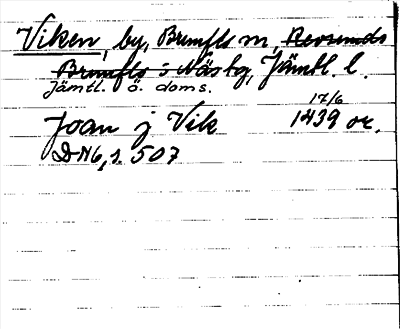 Viken, by, Brunflo sn, Revsunds
Brunflo s Näs tg, Jämtl. l.
Jämtl. ö. doms.
17/6
Joan j Vik 1439 or.
DN 16, s. 507